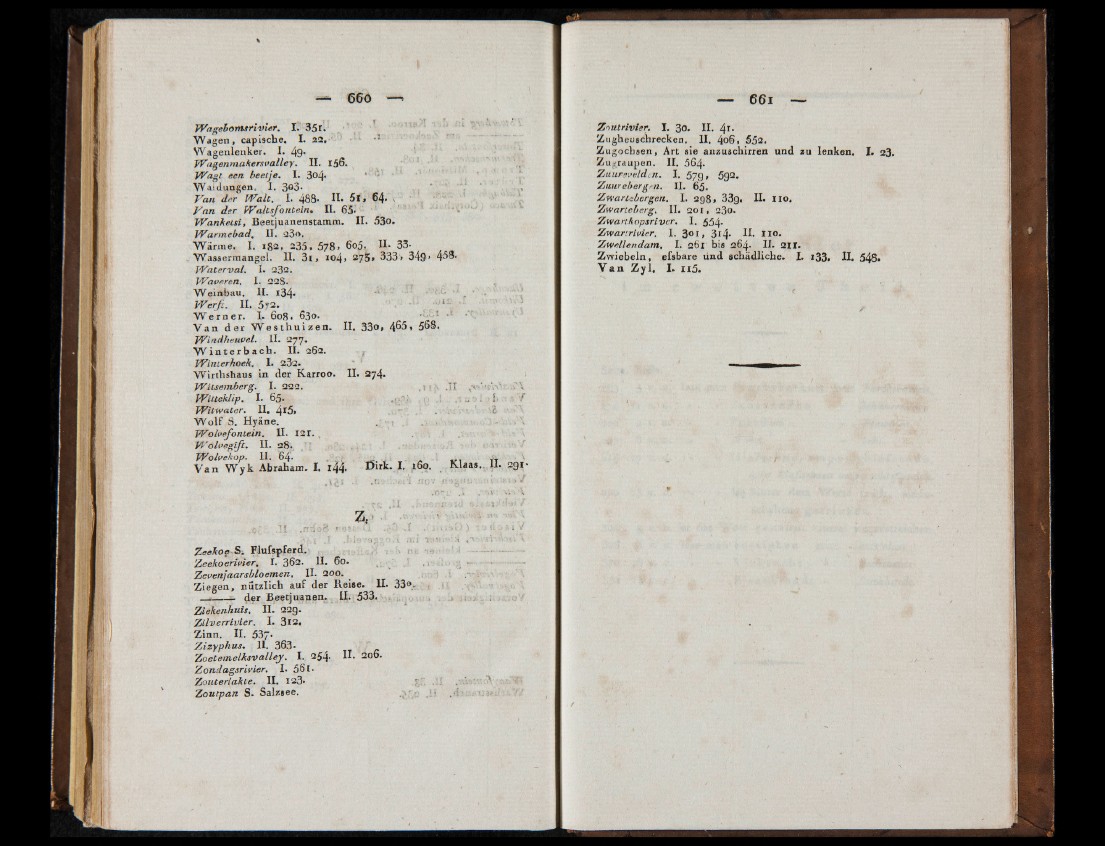 — 660 —
Wagebomsrivier. I. 351.
Wagen, capische. I. 22.
Wagenlenker. I. 49.
Wagenmakersvalley. II. 156.
Wagt een beetje. I. 304.
Waldungen. I. 303.
Van der Walt. I. 488. II. 51, 64.
Van der Waltsfontein. II. 65.
Wanketsi, Beetjuanenstamm. II. 530.
Warmebad. II. 230.
Wärme. I. 182, 235, 578, 605. II. 33.
Wassermangel. II. 31, 104, 275, 333, 349, 458.
Waterval. I. 232.
Waveren. I. 228.
Weinbau. II. 134.
Werft. II. 572.
Werner. I. 608, 630.
Van der Westhuizen. II. 330, 465, 568.
Windheuvel. II. 277.
Winterbach. II. 262.
Winterhoek. I. 232.
Wirthshaus in der Karroo. II. 274.
Witsemberg. I. 222.
Witteklip. I. 65.
Witwater. II. 415.
Wolf S. Hyäne.
Wolvefontein. II. 121.
Wolvegift. II. 28.
Wolvekop. II. 64.
Van Wyk Abraham. I. 144. Dirk. I. 160. Klaas. II. 291.
Z.
Zeekoe S. Flufspferd.
Zeekoerivier. I. 362. II. 60.
Zevenjaarsbloemen. II. 200.
Ziegen, nützlich auf der Reise. II. 330.
——— der Beetjuanen. II. 533.
Ziekenhuis. II. 229.
Zilverrivier. I. 312.
Zinn. II. 537.
Zizyphus. II. 363.
Zoetemelksvalley. I. 254. II. 206.
Zondagsrivier. I. 561.
Zouterlakte. II. 123.
Zoutpan S. Salzsee.
— 661 —
Zoutrivier. I. 30. II. 41.
Zugheuschrecken. II. 406, 552.
Zugochsen, Art sie anzuschirren und zu lenken. I. 23.
Zugraupen. II. 564.
Zuureveldon. I. 579, 592.
Zuurebergen. II. 65.
Zwartebergen. I. 298, 339. II. 110.
Zwarteberg. II. 201, 230.
Zwartkopsriver. I. 554.
Zwartrivier. I. 301, 314. II. 110.
Zwellendam. I. 261 bis 264. II. 211.
Zwiebeln, efsbare und schädliche. I. 133. II. 548.
Van Zyl. I. 115.